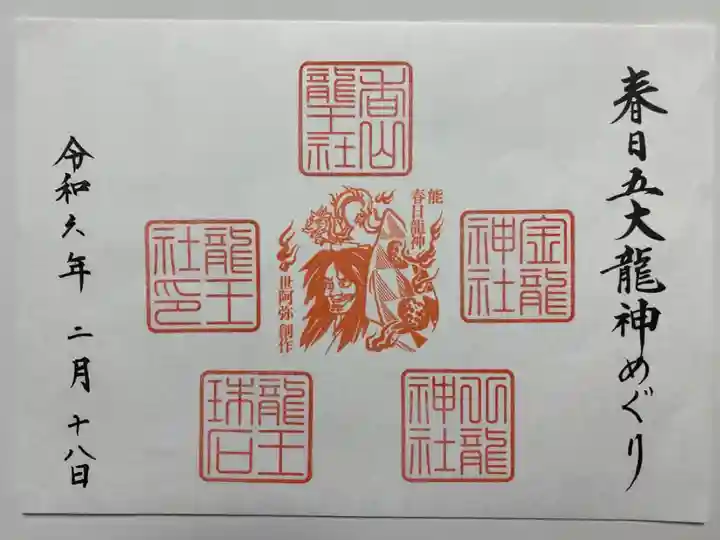 春日五大龍神めぐり
香山
龍王社
金龍
神社
能
春日龍神
世阿弥 創作
龍王
社印
龍王
珠石
龍
神社
令和六年 二月 十八日